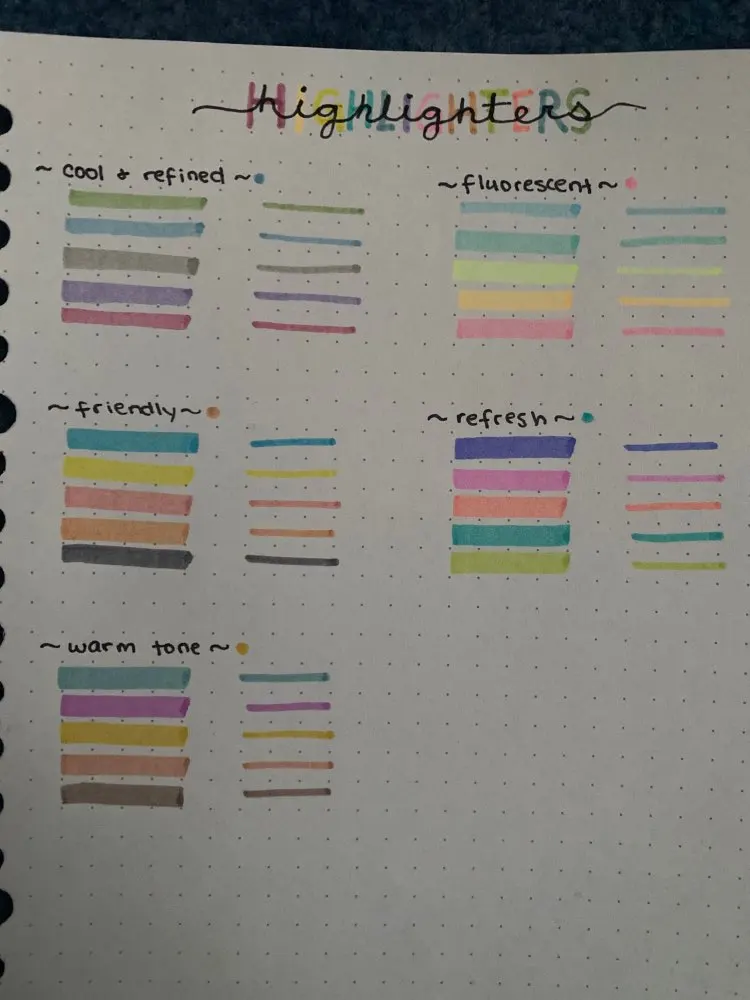 HIGHLIGHTERS
highlighters
~ cool & refined ~
~ fluorescent ~
~ friendly ~
~ refresh ~
~ warm tone ~